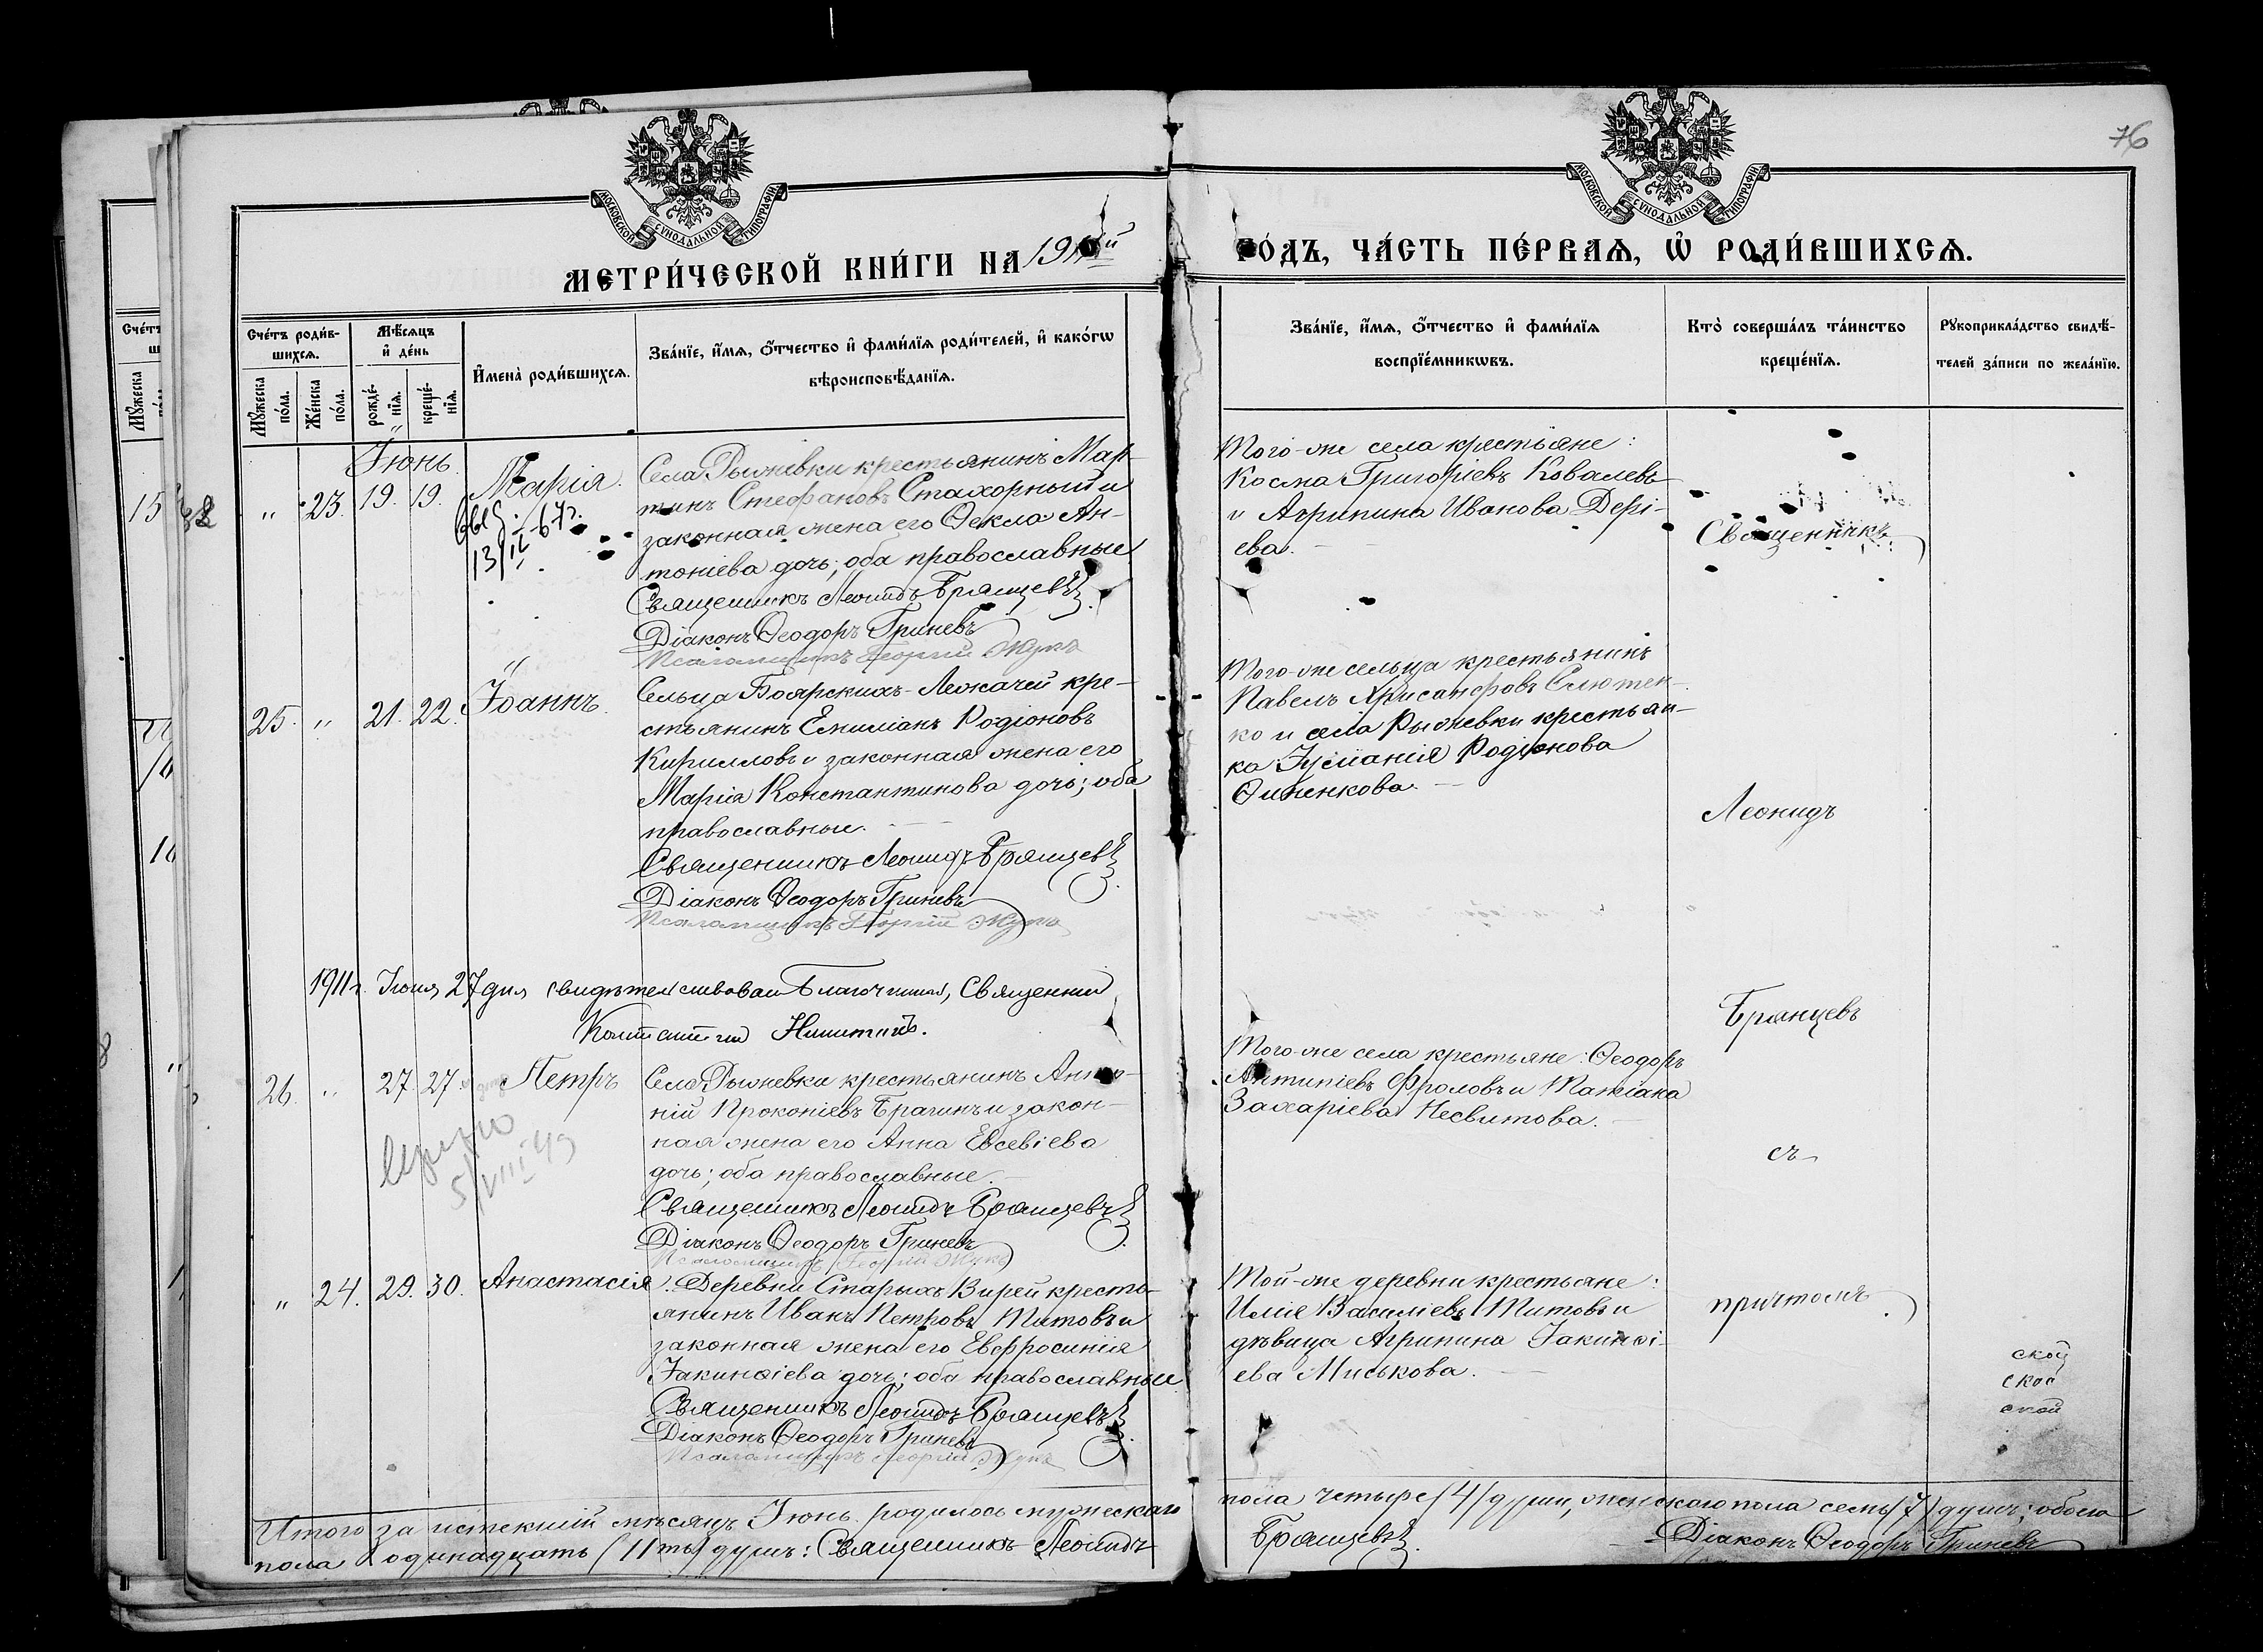 76
МОСКОВСКОЙ СУНОДАЛЬНОЙ ТИПОГРАФІИ
МОСКОВСКОЙ СУНОДАЛЬНОЙ ТИПОГРАФІИ
МЕТРИ́ЧЕСКОЙ КНИ́ГИ НА 1911й
ГО́ДЪ, ЧА́СТЬ ПЕ́РВАѦ, Ѡ҆ РОДИ́ВШИХСѦ.
Сче́тъ роди́вшихсѧ.
Мѣ́сѧцъ и҆ де́нь
И҆мена̀ роди́вшихсѧ.
Зва́нїе, и҆́мѧ, ѻ҆́тчество и҆ фами́лїѧ роди́телей, и҆ како́гѡ
вѣроисповѣ́данїѧ.
Мꙋ́жеска по́ла.
Же́нска по́ла.
рожде́нїѧ.
креще́нїѧ.
Зва́нїе, и҆́мѧ, ѻ҆́тчество и҆ фами́лїѧ
воспрїе́мникѡвъ.
Кто̀ соверша́лъ та́инство
креще́нїѧ.
Рꙋкоприкла́дство свидѣ́-
телей за́писи по жела́нїю.
Іюнь
" 23. 19. 19. Марія.
13/II - 67г.
Села Рыжевки крестьянинъ Мар-
тинъ Стефановъ Стахорный и
законная жена его Ѳекла Ан-
тоніева дочь; оба православные
Священникъ Леонидъ Брянцевъ
Діаконъ Ѳеодоръ Гриневъ
Псаломщикъ Георгій Жукъ
Того-же села крестьяне:
Косма Григоріевъ Ковалевъ
и Агрипина Иванова Дері-
ева.
Священникъ
25. " 21. 22. Іоаннъ.
Сельца Боярскихъ-Лежачей кре-
стьянинъ Емиліанъ Родіоновъ
Кирилловъ и законная жена его
Марія Константинова дочь; оба
православные.
Священникъ Леонидъ Брянцевъ
Діаконъ Ѳеодоръ Гриневъ
Псаломщикъ Георгій Жукъ
Того-же сельца крестьянинъ
Павелъ Хрисанфовъ Слютен-
ко и села Рыжевки крестьян-
ка Родіонова
Леонидъ
1911 г. Іюня 27 дня свидѣтельствовалъ Благочинный, Священникъ
Константинъ Никитинъ.
Брянцевъ
26. " 27. 27. Петръ
5/VIII 49
Села Рыжевки крестьянинъ Анто-
ній Прокопіевъ Брагинъ и закон-
ная жена его Анна Евсевіева
дочь; оба православные.
Священникъ Леонидъ Брянцевъ
Діаконъ Ѳеодоръ Гриневъ
Псаломщикъ Георгій Жукъ
Того-же села крестьяне: Ѳеодоръ
Антипіевъ Фроловъ и Татіана
Захаріева Несвитова.
съ
" 24. 29. 30. Анастасія.
Деревни Старыхъ Вирей кресть-
янинъ Иванъ Петровъ Титовъ и
законная жена его Евфросинія
Іакинѳіева дочь; оба православные
Священникъ Леонидъ Брянцевъ
Діаконъ Ѳеодоръ Гриневъ
Псаломщикъ Георгій Жукъ
Той-же деревни крестьяне:
Илія Василіевъ Титовъ и
дѣвица Агрипина Іакинѳі-
ева Миськова.
причтомъ
ской
ской
ской
Итого за истекшій мѣсяцъ Іюнь родилось мужескаго
пола четыре /4/ души, женскаго пола семь /7/ душъ; обоего
пола одинадцать /11ть/ душъ: Священникъ Леонидъ
Брянцевъ Діаконъ Ѳеодоръ Гриневъ